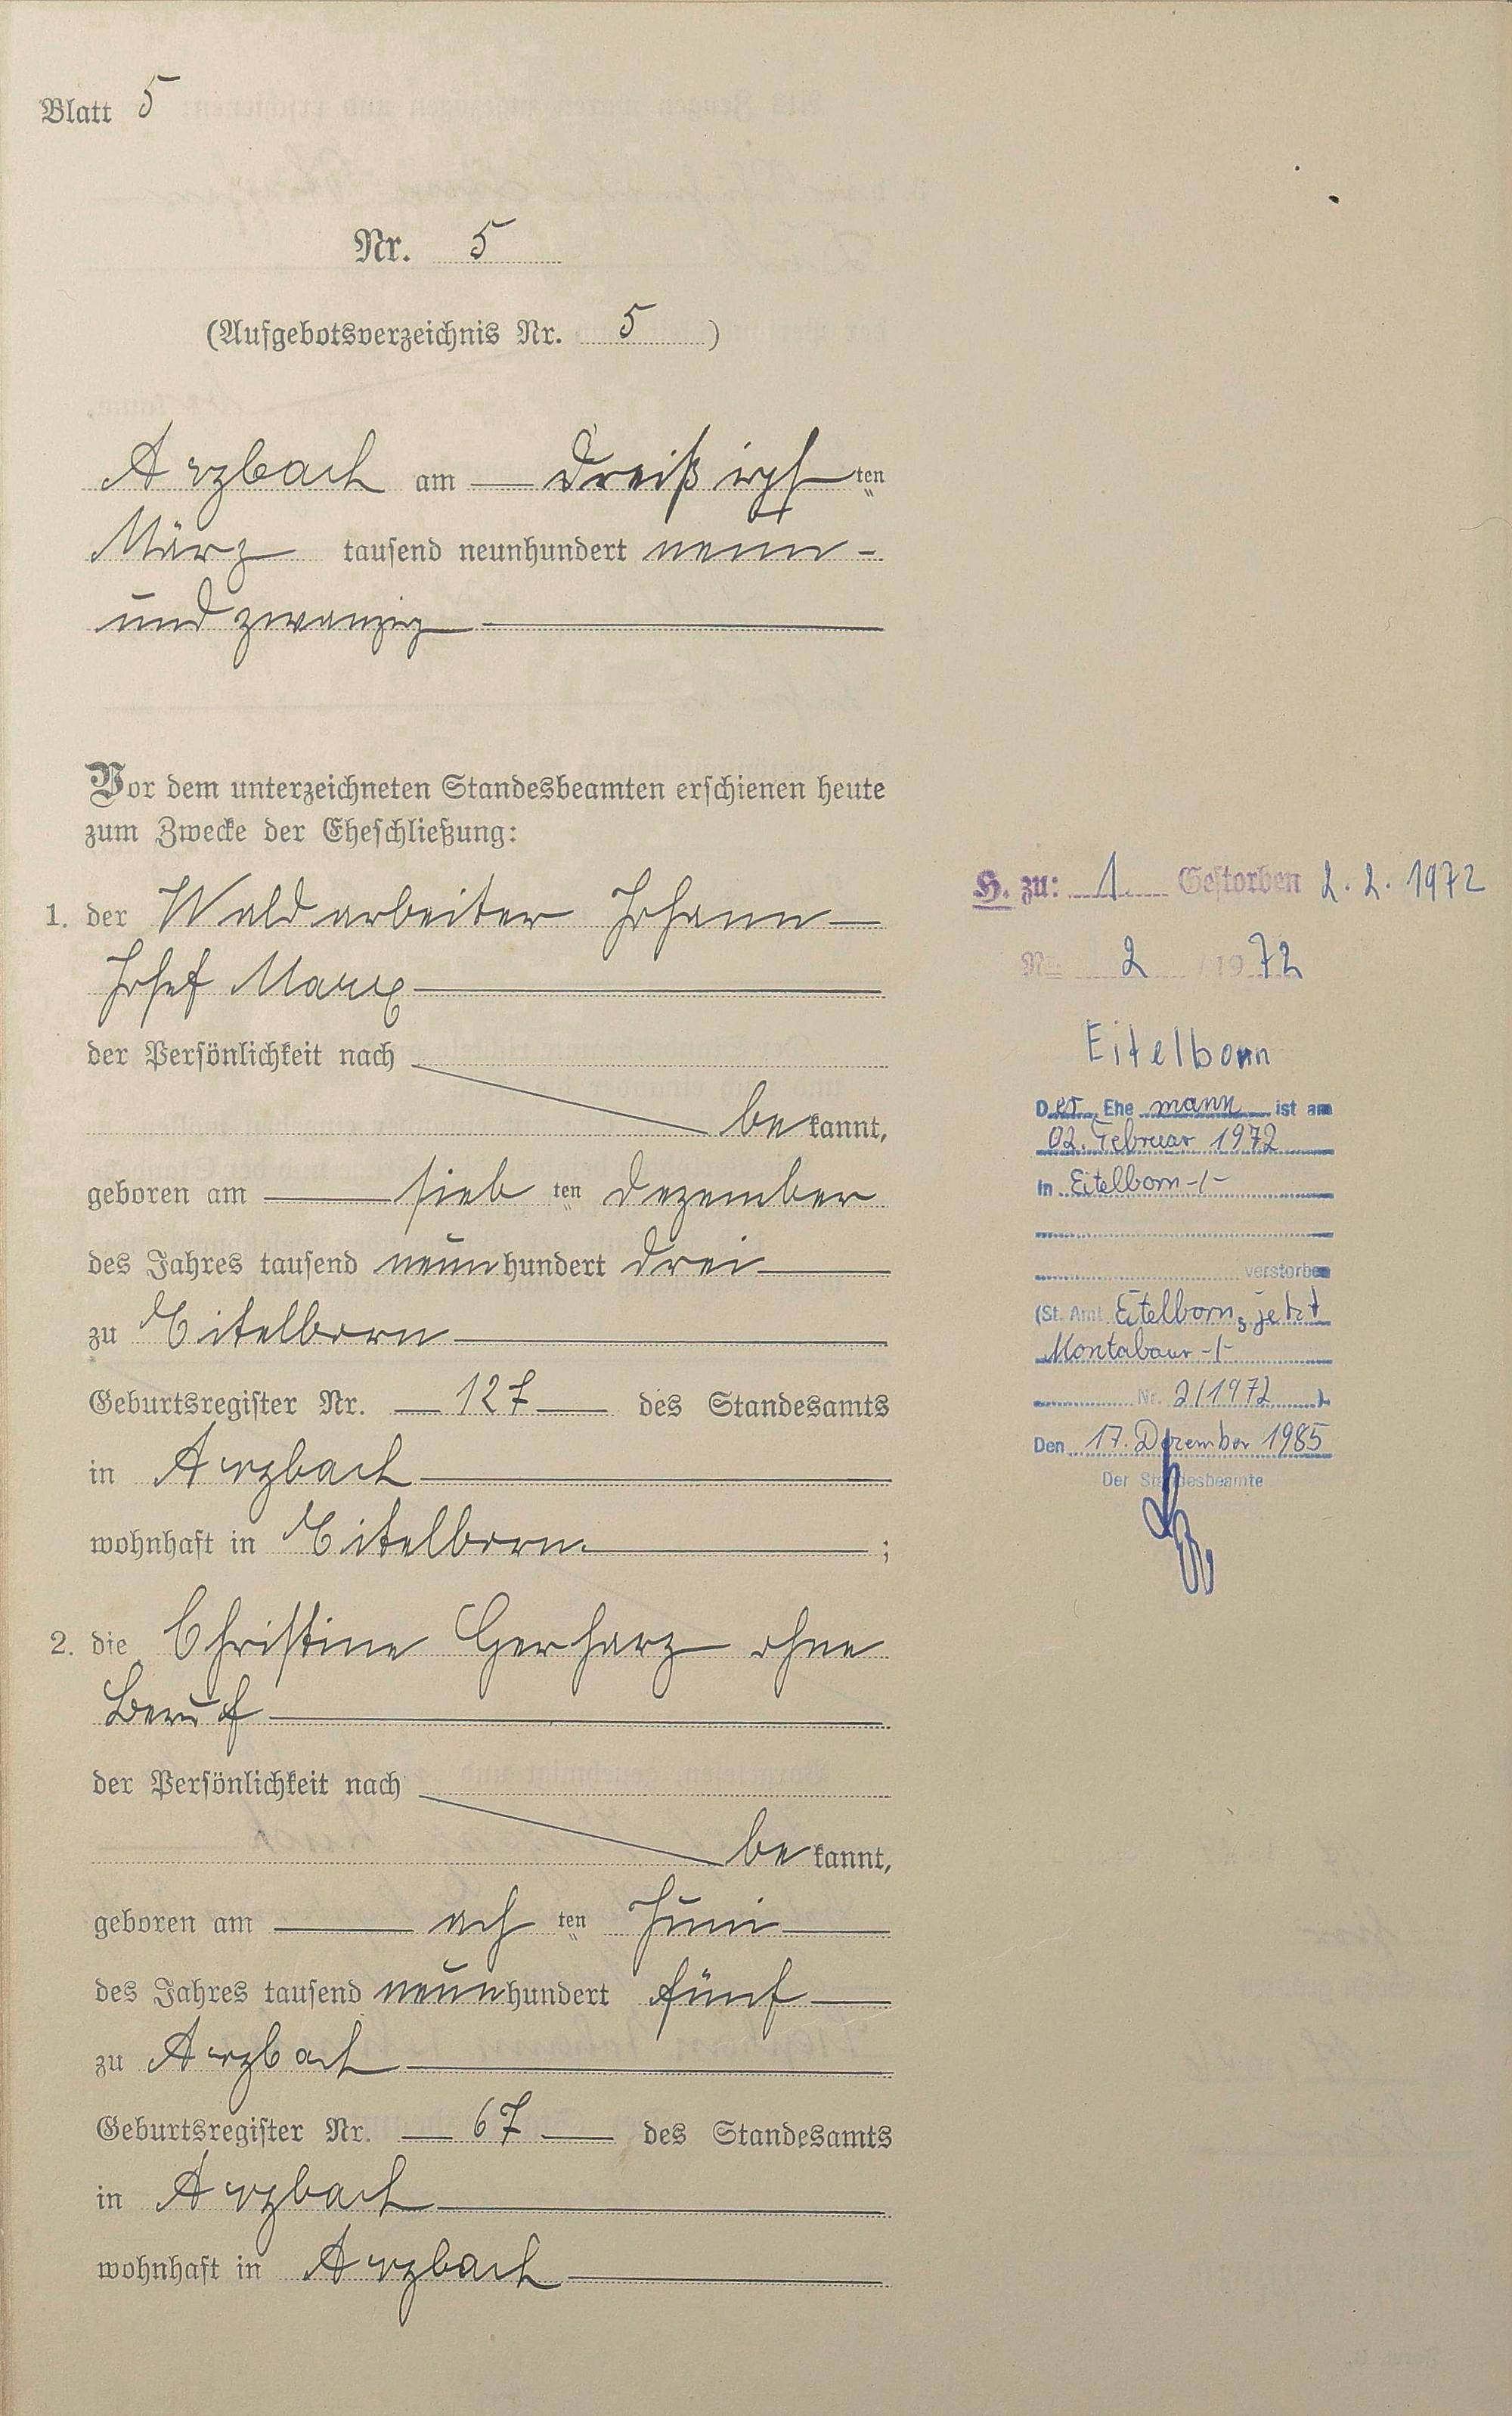 Blatt 5
Nr. 5
(Aufgebotsverzeichnis Nr. 5 )
Arzbach am dreißigsten
März tausend neunhundert neun-
und zwanzig
Vor dem unterzeichneten Standesbeamten erschienen heute
zum Zwecke der Eheschließung:
1. der Waldarbeiter Johann
Josef Marx
der Persönlichkeit nach
bekannt,
geboren am siebten Dezember
des Jahres tausend neunhundert drei
zu Eitelborn
Geburtsregister Nr. 127 des Standesamts
in Arzbach
wohnhaft in Eitelborn ;
2. die Christine Gerharz ohne
Beruf
der Persönlichkeit nach
bekannt,
geboren am achten Juni
des Jahres tausend neunhundert fünf
zu Arzbach
Geburtsregister Nr. 67 des Standesamts
in Arzbach
wohnhaft in Arzbach
H. zu: 1 Gestorben 2. 2. 1972
Nr. 2 / 1972
Eitelborn
Der Ehemann ist am
02. Februar 1972
in Eitelborn -/-
verstorben
(St. Amt Eitelborn, jetzt
Montabaur -/-
Nr. 2/1972 ).
Den 17. Dezember 1985
Der Standesbeamte